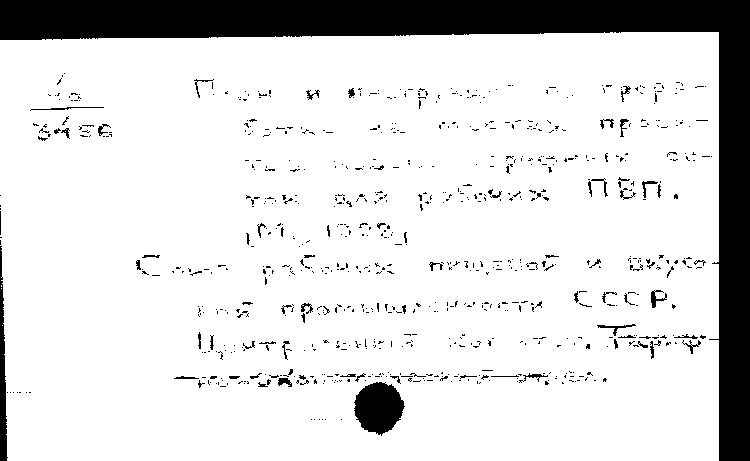 40
34586
План и инструкция по прора-
ботке на местах проек-
та новых тарифных се-
ток для рабочих ПВП.
Союз рабочих пищевой и вкусо-
вой промышленности СССР.
Центральный комитет. Тариф
отдел.